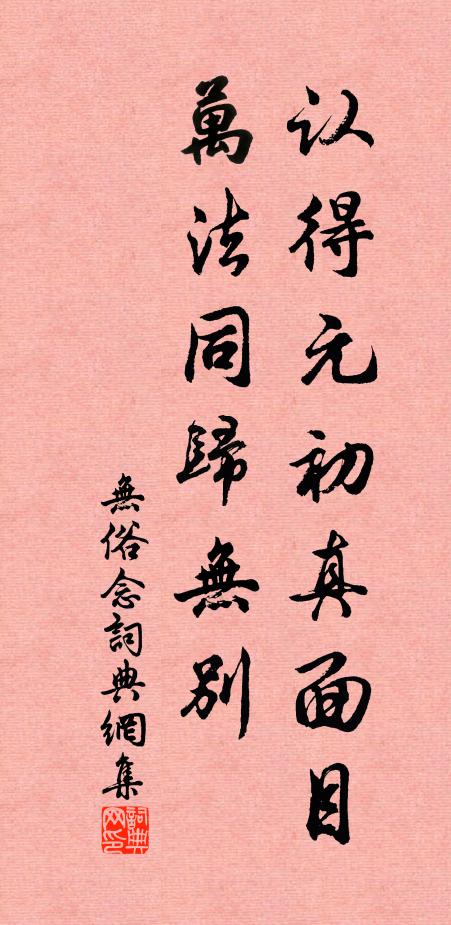 认得元初真面目
萬法同歸無别
無俗念詞典網集
詞典网印